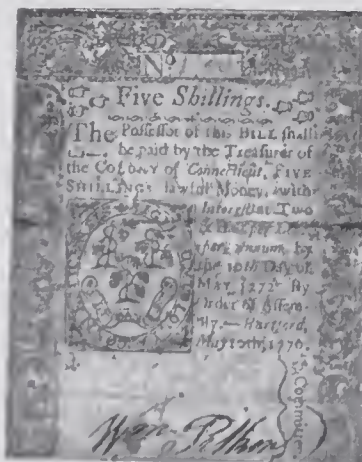 No
Five Shillings.
The Possessor of this BILL shall
be paid by the Treasurer of
the COLONY of Connecticut, FIVE
SHILLINGS lawful Money, with
Interest at Two
& Half per
per annum, by
the 10th Day of
MAY, 1772 By
Order of Assem-
bly.— Hartford,
May 10th, 1770.
Committee
Wm Pitkin